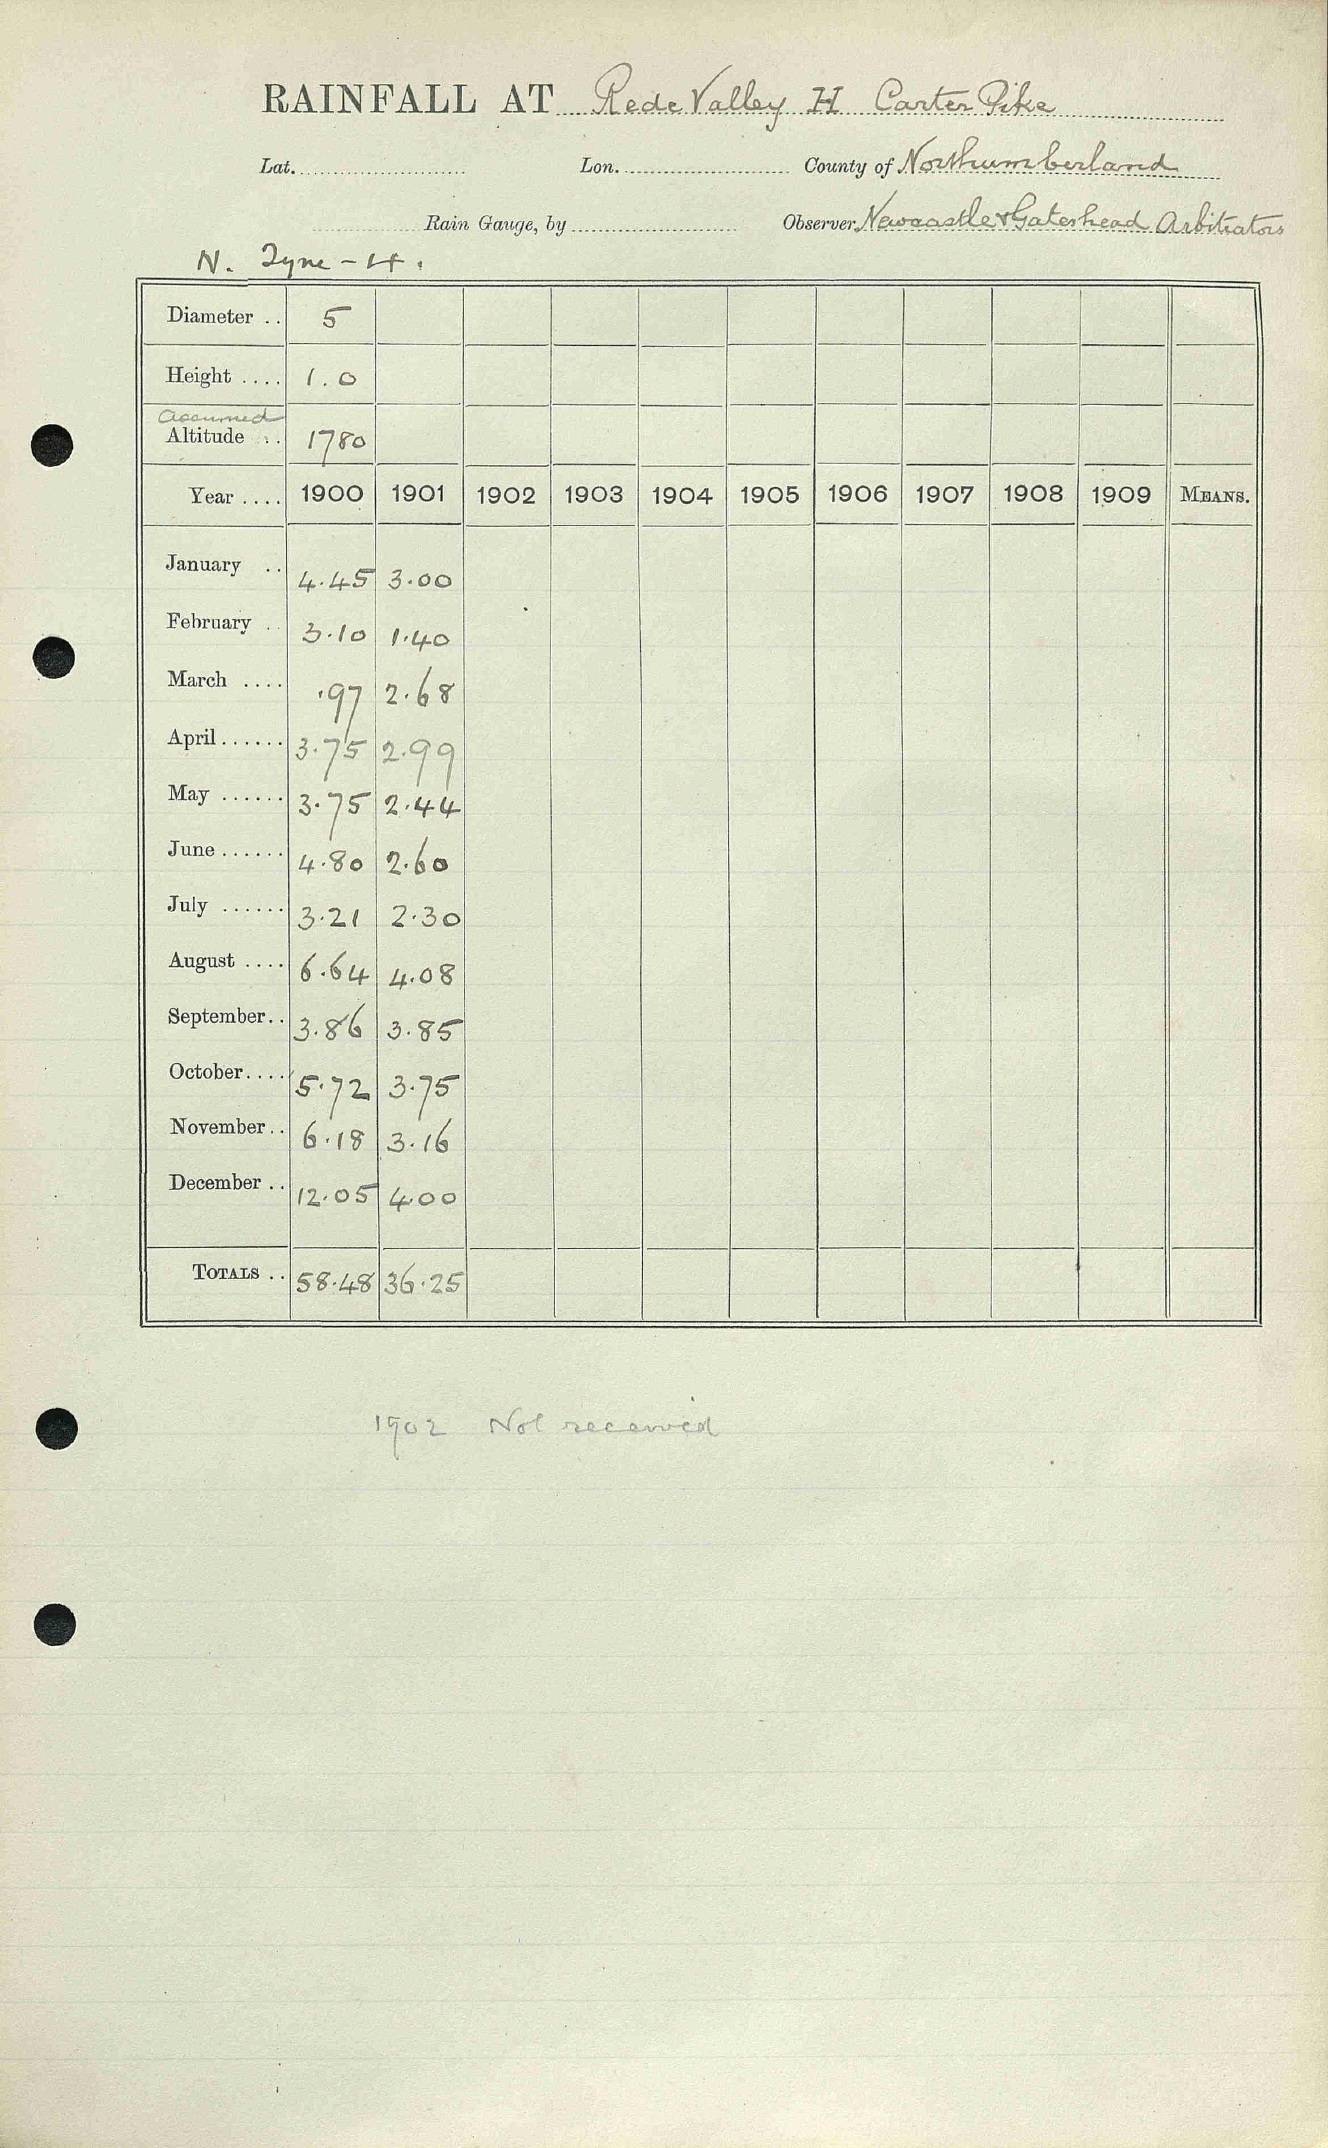 RAINFALL AT Rede Valley H Carter Pike
Lat. Lon. County of Northumberland
Rain Gauge, by Observer Newcastle & Gateshead Arbitrators
N. Tyne - 14.
Diameter .. 5
Height .... 1.0
assumed
Altitude .. 1780
Year .... 1900 1901 1902 1903 1904 1905 1906 1907 1908 1909 MEANS.
January .. 4.45 3.00
February .. 3.10 1.40
March .... .97 2.68
April ...... 3.75 2.99
May ...... 3.75 2.44
June ...... 4.80 2.60
July ...... 3.21 2.30
August .... 6.64 4.08
September.. 3.86 3.85
October.... 5.72 3.75
November.. 6.18 3.16
December .. 12.05 4.00
TOTALS .. 58.48 36.25
1902 Not received